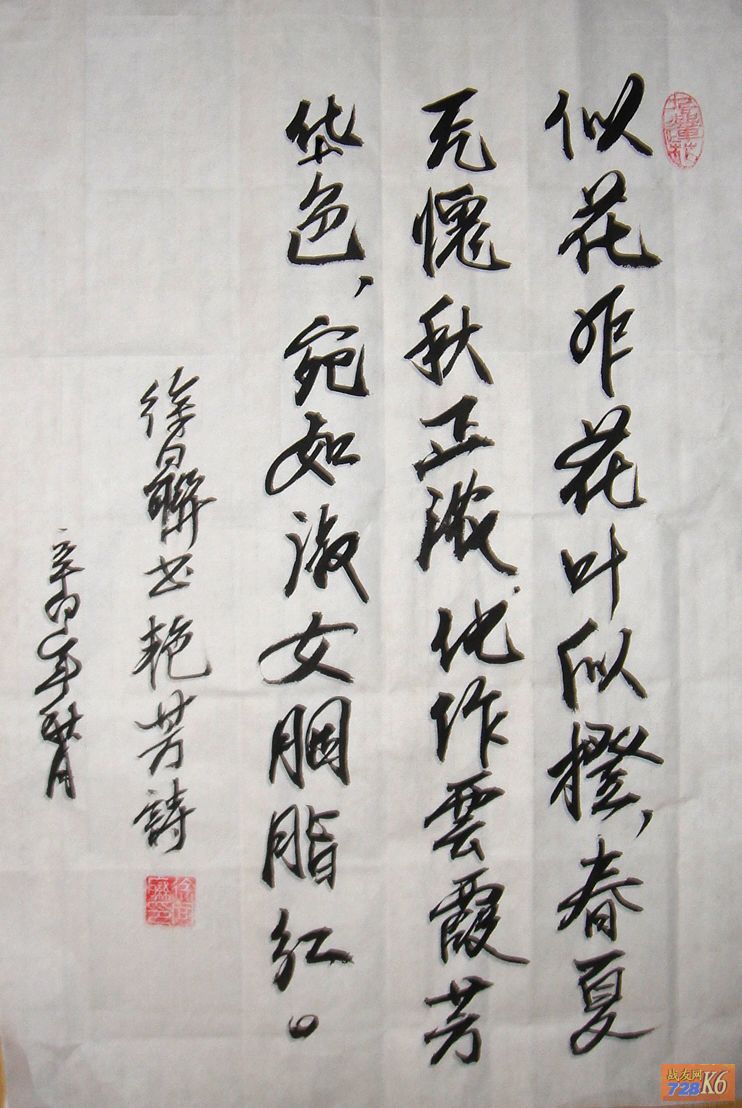 似花非花叶似橙，春夏
无愧秋正浓，化作雲霞芳
华色，宛如淑女胭脂红。
徐聯书艳芳詩
辛卯年秋月
战友网
728K6